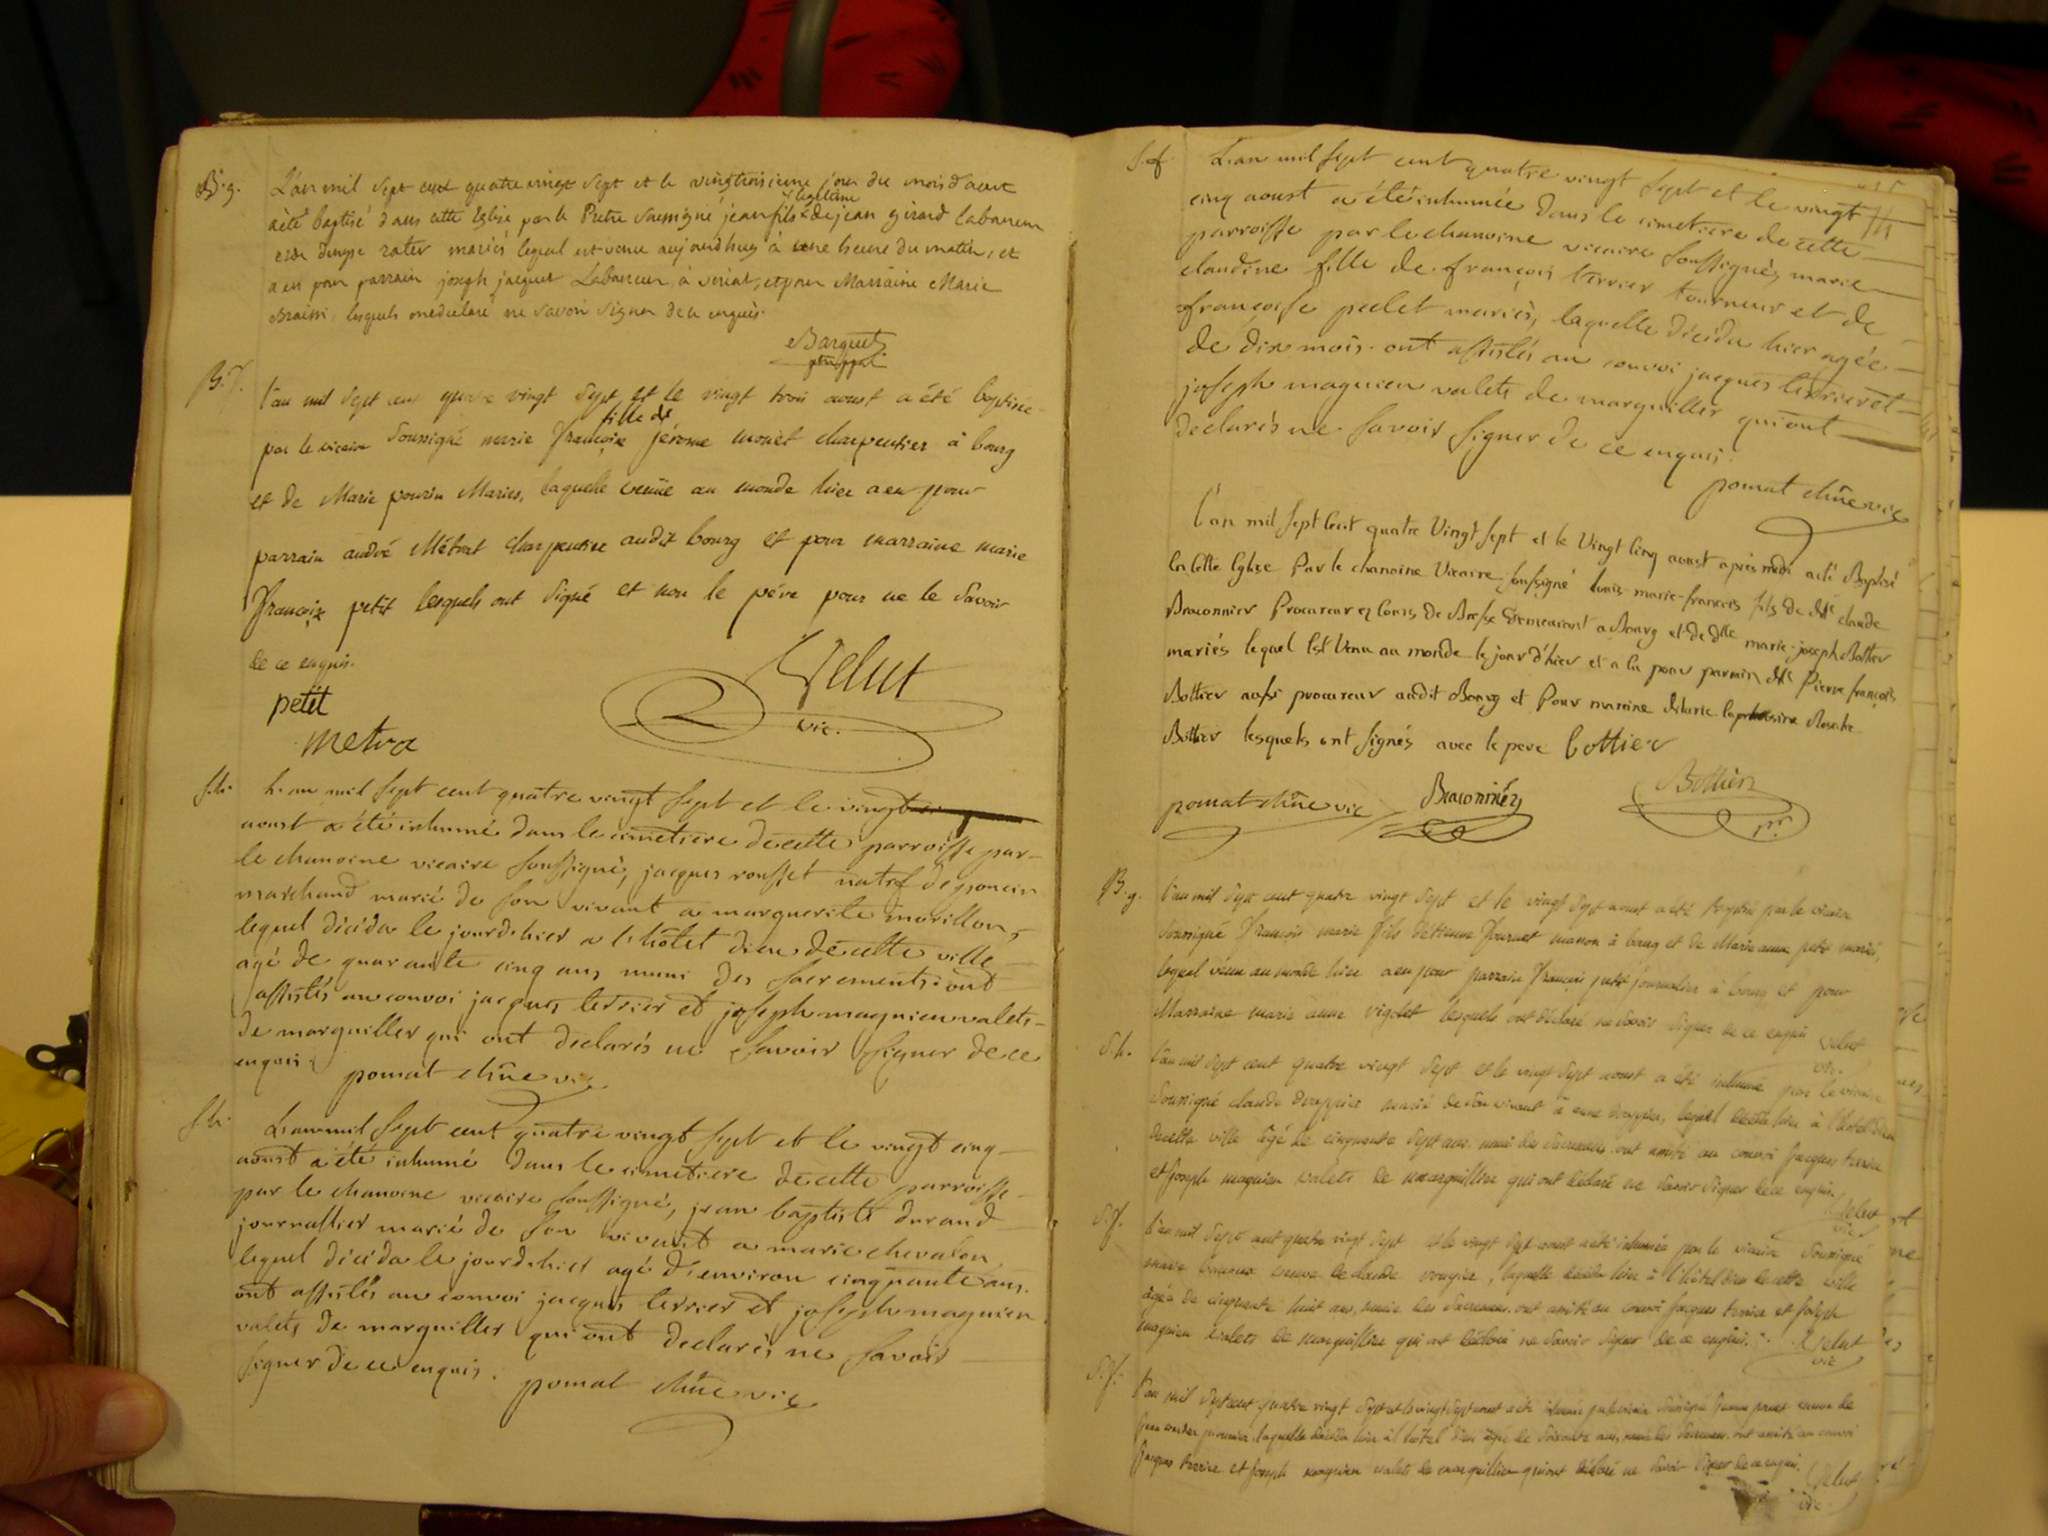 B. g.
L'an mil sept cent quatre vingt sept et le vingtroisieme jour du mois d'aout
a été baptisé dans cette Eglise par le Pretre soussigné jean fils legitime de jean girard laboureur
mariés lequel est venu aujourdhuy à une heure du matin, et
a eu pour parrain joseph jacquet Laboureur à viriat, et pour Marraine Marie
lesquels ont declaré ne savoir signer de ce enquis.
Barquet
B. f.
l'an mil sept cent quatre vingt sept et le vingt trois aoust a été baptisée
par le vicaire soussigné marie françoise fille de jérome monet charpentier à bourg
et de Marie pourin Mariés, laquelle venüe au monde hier a eu pour
parrain andré Métrat charpentier audit bourg et pour marraine marie
françoise petit lesquels ont signé et non le pére pour ne le savoir
de ce enquis.
petit
Velut
vic.
metra
S. h.
L'an mil sept cent quatre vingt sept et le vingt
aoust a été inhumé dans le cimetiere de cette parroisse par
le chanoine vicaire soussigné, jacques rousset natif de poncin
marchand marié de son vivant a marguerite morillon,
lequel décéda le jour d'hier a l'hôtel dieu de cette ville
agé de quarante cinq ans muni des sacrements. ont
assistés au convoi jacques terrier et joseph magnien valets
de marguiller qui ont declarés ne savoir signer de ce
enquis. pomat chne vic
S. h.
L'an mil sept cent quatre vingt sept et le vingt cinq
aoust a été inhumé dans le cimetiere de cette parroisse
par le chanoine vicaire soussigné, jean baptiste durand
journallier marié de son vivant a marie chevalon
lequel décéda le jour d'hier agé d'environ cinquante ans.
ont assistés au convoi jacques terrier et joseph magnien
valets de marguiller qui ont declarés ne savoir
signer de ce enquis. pomat chne vic
S. f.
L'an mil sept cent quatre vingt sept et le vingt
cinq aoust a été inhumée dans le cimetiere de cette
parroisse par le chanoine vicaire soussigné, marie
claudine fille de françois terrier tourneur et de
françoise pelet mariés, laquelle décéda hier agée
de dix mois. ont assistés au convoi jacques terrier et
joseph magnien valets de marguiller qui ont
declarés ne savoir signer de ce enquis.
pomat chne vic
l'an mil sept cent quatre Vingt sept et le Vingt cinq aoust après midi a été Baptisé
en cette Eglise Par le chanoine Vicaire soussigné louis-marie-françois fils de claude
Braconnier Procureur ez cours de Bresse Demeurant a Bourg et de dlle marie-joseph Bottier
mariés lequel Est Venu au monde le jour d'hier et a Eu pour parrain Pierre françois
Bottier aussi procureur audit Bourg et Pour marraine
Bottier lesquels ont signés avec le pere bottier
pomat chne vic Braconnier Bottier
B. g.
l'an mil sept cent quatre vingt sept et le vingt sept aoust a été baptisé par le vicaire
soussigné François marie fils d'étienne Fournet à bourg et de Marie anne petit mariés,
lequel vénu au monde hier a eu pour parrain François petit journalier à bourg et pour
Marraine marie anne vigolet lesquels ont déclaré ne savoir signer de ce enquis Velut
vic.
S. h.
l'an mil sept cent quatre vingt sept et le vingt sept aoust a été inhumé par le vicaire
soussigné claude marié de son vivant à anne lequel décéda hier à l'hotel dieu
de cette ville agé de cinquante sept ans muni des sacremens. ont assisté au convoi Jacques terrier
et Joseph magnien valets de marguillier qui ont déclaré ne savoir signer de ce enquis.
Velut
vic
S. f.
l'an mil sept cent quatre vingt sept et le vingt sept aoust a été inhumée par le vicaire soussigné
marie veuve de claude laquelle décéda hier à l'hôtel dieu de cette ville
agée de cinquante huit ans, munie des sacremens. ont assisté au convoi Jacques terrier et Joseph
magnien valets de marguillier qui ont déclaré ne savoir signer de ce enquis. Velut
vic
S. f.
l'an mil sept cent quatre vingt sept et le vingt sept aoust a été inhumée par le vicaire soussigné veuve de
laquelle décéda hier à l'hôtel dieu agée de soixante ans, munie des sacremens. ont assisté au convoi
Jacques terrier et Joseph magnien valets de marguillier qui ont déclaré ne savoir signer de ce enquis. Velut
vic